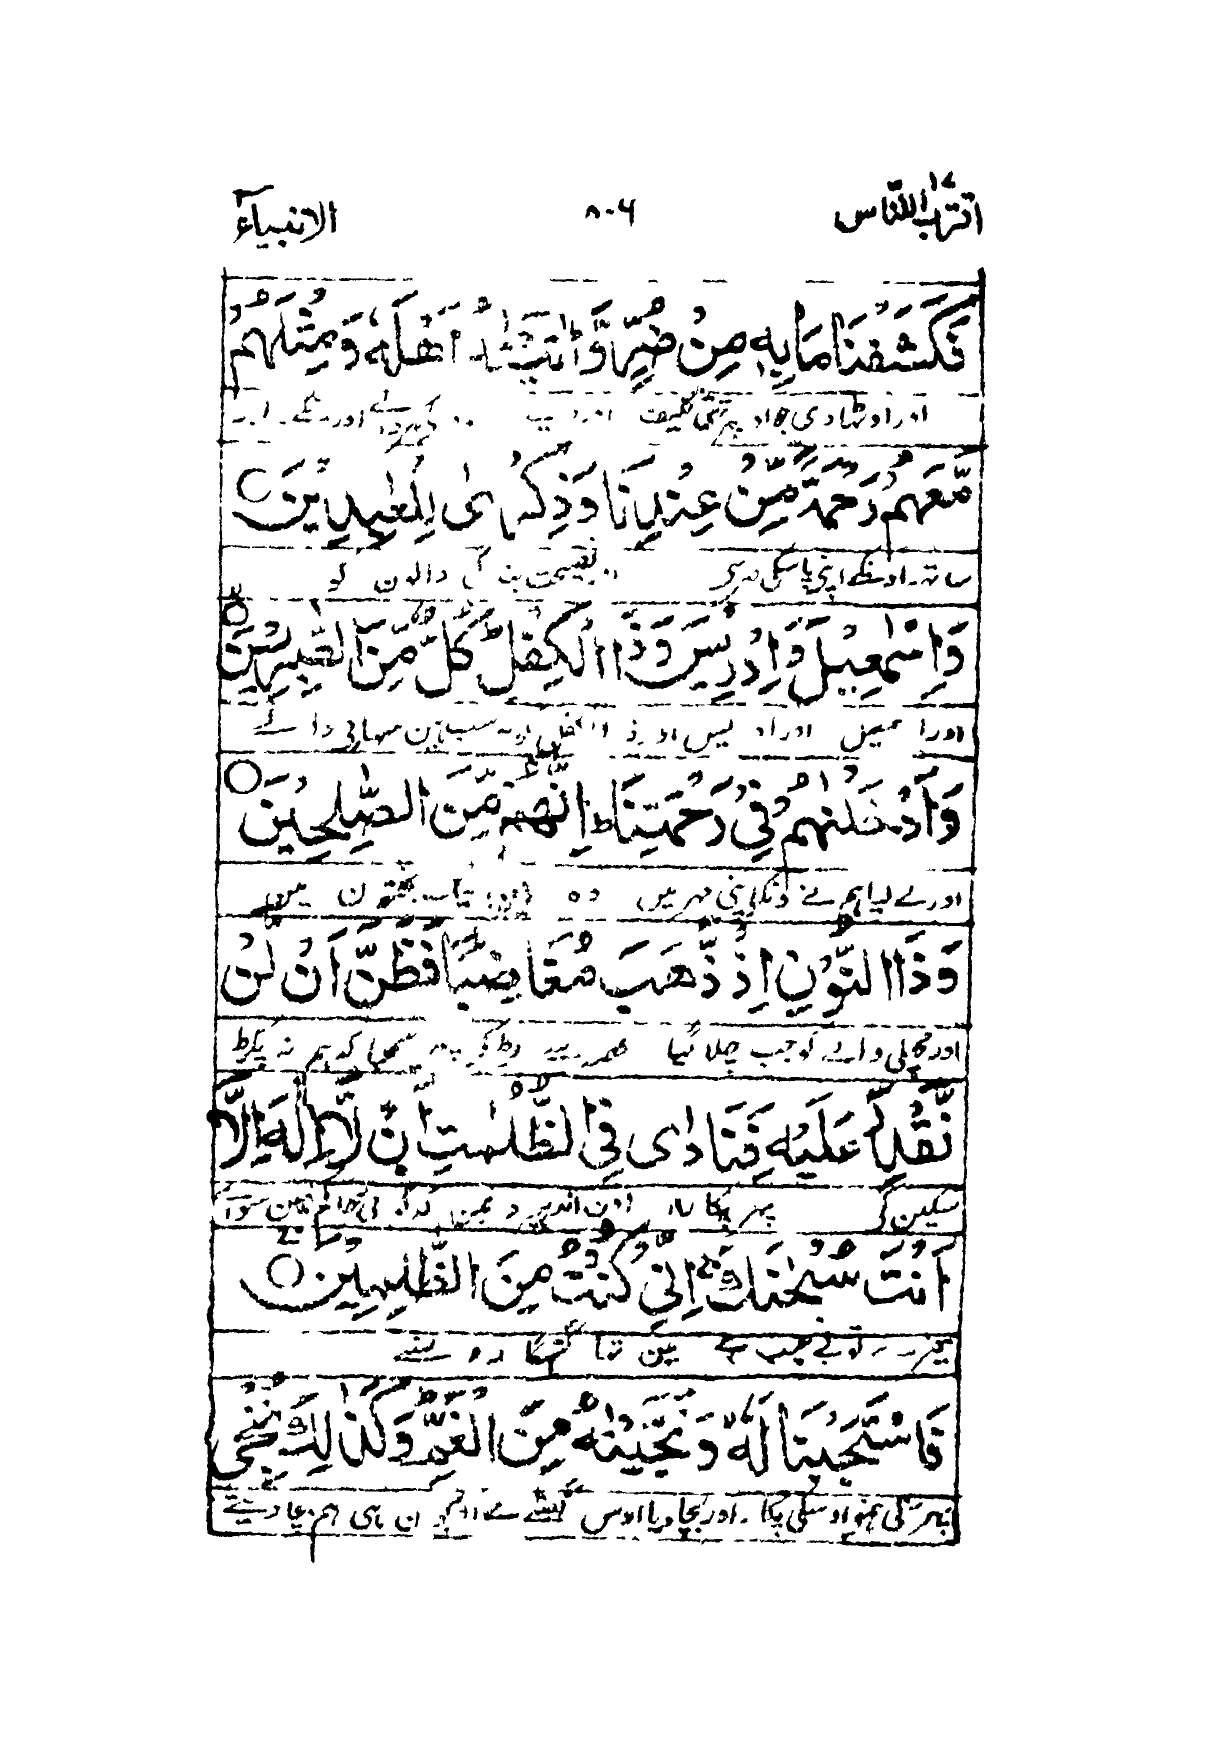 اقترب للناس ١٧
٨٠٦
الانبیآء
فَكَشَفْنَا مَا بِهٖ مِنْ ضُرٍّ وَّاٰتَيْنٰهُ اَهْلَهٗ وَمِثْلَهُمْ
اور اوٹھا دی جو اوپر تھی تکلیف اور
مَّعَهُمْ رَحْمَةً مِّنْ عِنْدِنَا وَذِكْرٰى لِلْعٰبِدِيْنَ
ساتھ اونکے اپنی پاسکی مہر سے اور نصیحت بندگی والون کو
وَاِسْمٰعِيْلَ وَاِدْرِيْسَ وَذَا الْكِفْلِ ؕ كُلٌّ مِّنَ الصّٰبِرِيْنَ
اور اسمعیل اور ادریس اور ذا الکفل یہ سب ہین سہارنی والے
وَاَدْخَلْنٰهُمْ فِيْ رَحْمَتِنَا ؕ اِنَّهُمْ مِّنَ الصّٰلِحِيْنَ
اور لے لیا ہم نے اونکو اپنی مہر میں وہ ہین نیک بختون مین
وَذَا النُّوْنِ اِذْ ذَّهَبَ مُغَاضِبًا فَظَنَّ اَنْ لَّنْ
اور مچھلی والے کو جب چلا گیا غصہ سے لڑ کر پھر سمجھا کہ ہم نہ پکڑ
نَّقْدِرَ عَلَيْهِ فَنَادٰى فِي الظُّلُمٰتِ اَنْ لَّآ اِلٰهَ اِلَّآ
سکین گے پھر پکارا اون اندھیرون مین کہ کوئی حاکم نہین سوا
اَنْتَ سُبْحٰنَكَ اِنِّيْ كُنْتُ مِنَ الظّٰلِمِيْنَ
تیرے تو بے عیب ہے مین تھا گنہگارون سے
فَاسْتَجَبْنَا لَهٗ وَنَجَّيْنٰهُ مِنَ الْغَمِّ ؕ وَكَذٰلِكَ نُنْجِي
پھر سن لی ہمنے اوسکی پکار اور بچا دیا اوس گھٹنے سے اور یون ہی ہم بچا دیتے